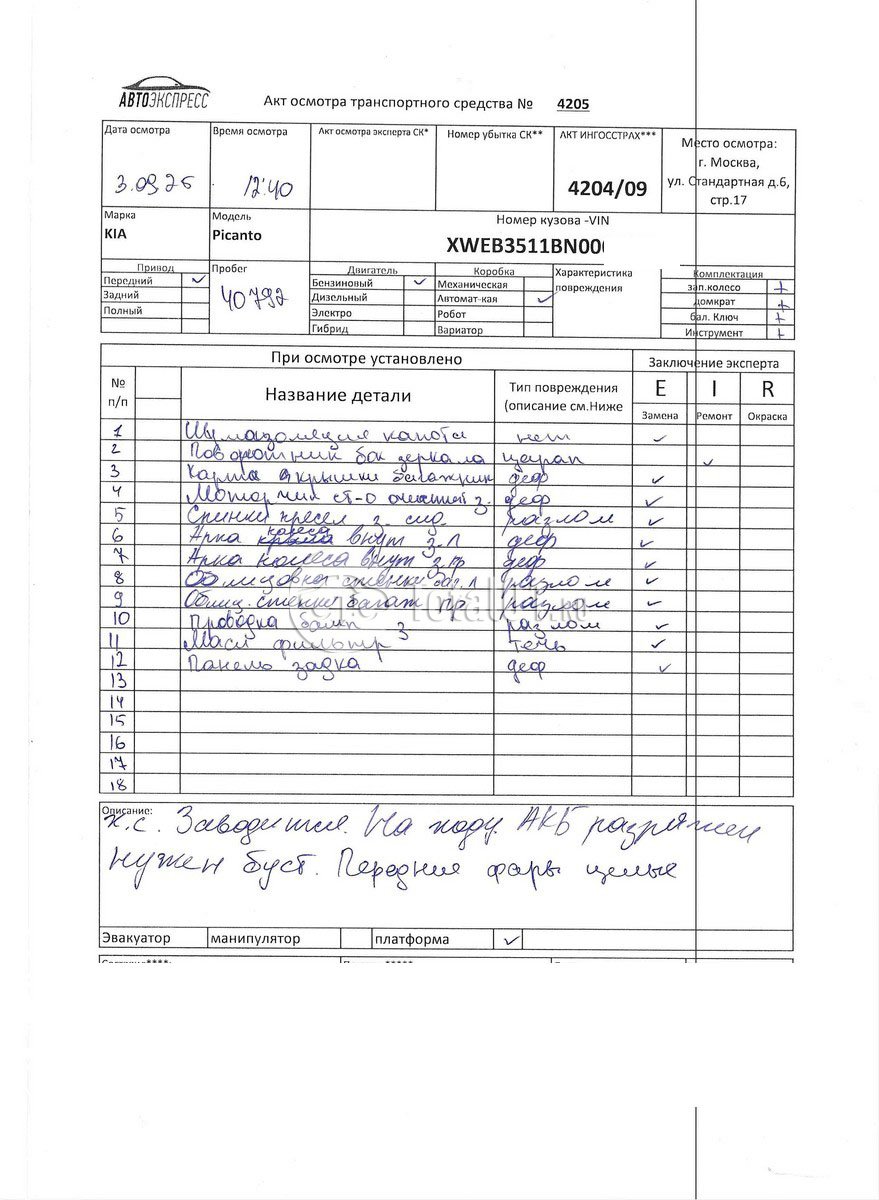 АВТОЭКСПРЕСС
Акт осмотра транспортного средства № 4205
Дата осмотра Время осмотра Акт осмотра эксперта СК* Номер убытка СК** АКТ ИНГОССТРАХ*** Место осмотра:
г. Москва,
3.09.26 12:40 4204/09 ул. Стандартная д.6,
стр.17
Марка Модель Номер кузова -VIN
KIA Picanto XWEB3511BN00
Привод Пробег Двигатель Коробка Характеристика Комплектация
Передний ✓ 40792 Бензиновый ✓ Механическая повреждения зап.колесо +
Задний Дизельный Автомат-кая ✓ домкрат +
Полный Электро Робот бал. Ключ +
Гибрид Вариатор Инструмент +
При осмотре установлено Заключение эксперта
№ п/п Название детали Тип повреждения (описание см.Ниже E I R
Замена Ремонт Окраска
1 Шумоизоляция капота нет ✓
2 Поворотник бок зеркала царап ✓
3 Карта крышки багажник деф ✓
4 Мотор ст-о з. деф ✓
5 Спинки кресел з. сид. разлом ✓
6 Арка колеса внут з.Л деф ✓
7 Арка колеса внут з.пр деф ✓
8 Облицовка стенки баг. Л разлом ✓
9 Облиц. стенки багаж пр разлом ✓
10 Проводка бамп з разлом ✓
11 Масл фильтр течь ✓
12 Панель задка деф ✓
13
14
15
16
17
18
Описание:
х.с. Заводится. На ходу. АКБ разряжен
нужен буст. Передние фары целые
Эвакуатор манипулятор платформа ✓
Total01.ru